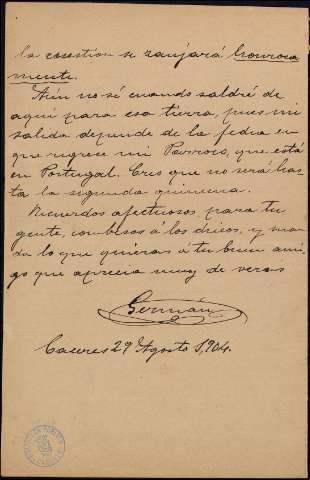 la cuestión se zanjará honrosa
mente.
Aún no sé cuando saldré de
aquí para esa tierra, pues mi
salida depende de la fecha en
que regrese mi Párroco, que está
en Portugal. Creo que no será has
ta la segunda quincena.
Recuerdos afectuosos para tu
gente, con besos á los chicos, y man
da lo que quieras á tu buen ami
go que aprecia muy de veras
Germán
Cáceres 29 Agosto 1,904.